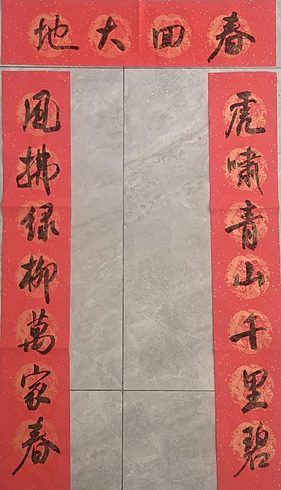 春回大地
虎啸青山千里碧
风拂绿柳萬家春